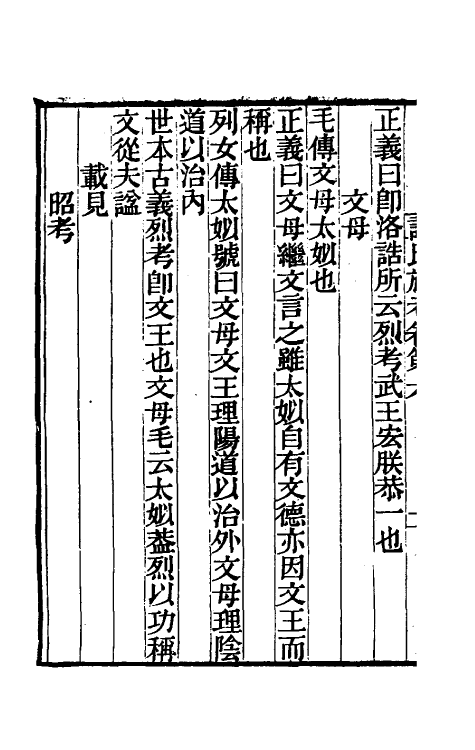 正義曰卽洛誥所云烈考武王宏朕恭一也
文母
毛傳文母太姒也
正義曰文母繼文言之雖太姒自有文德亦因文王而
稱也
列女傳太姒號曰文母文王理陽道以治外文母理陰
道以治內
世本古義烈考卽文王也文母毛云太姒葢烈以功稱
文從夫諡
載見
昭考